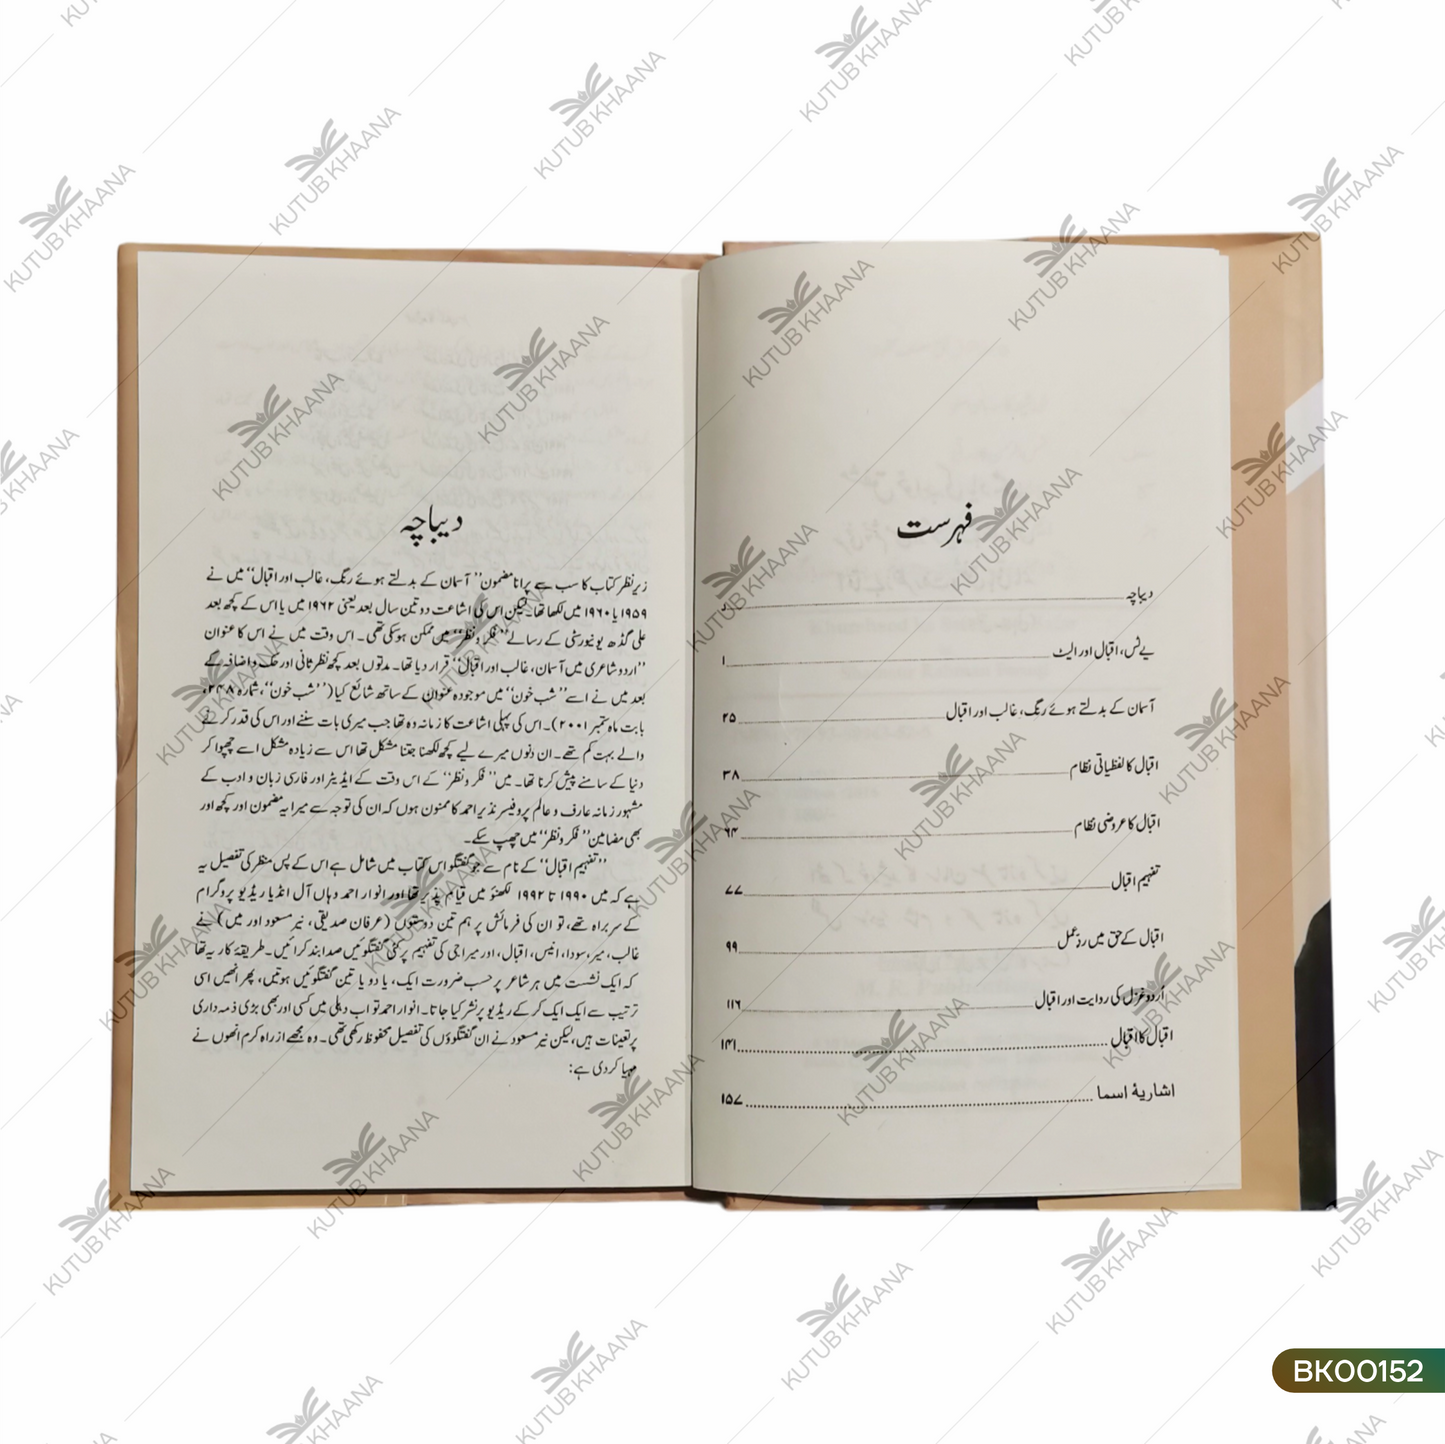 فہرست
دیباچہ
یے ٹس، اقبال اور الیٹ ۱
آسمان کے بدلتے ہوئے رنگ، غالب اور اقبال ۲۵
اقبال کا لفظیاتی نظام ۳۸
اقبال کا عروضی نظام ۶۴
تفہیم اقبال ۷۷
اقبال کے حق میں ردِّ عمل ۹۹
اُردو غزل کی روایت اور اقبال ۱۱۶
اقبال کا اقبال ۱۴۱
اشاریۂ اسما ۱۵۷
دیباچہ
زیر نظر کتاب کا سب سے پرانا مضمون ’’آسمان کے بدلتے ہوئے رنگ، غالب اور اقبال‘‘ میں نے
۱۹۵۹ یا ۱۹۶۰ میں لکھا تھا۔ لیکن اس کی اشاعت دو تین سال بعد یعنی ۱۹۶۲ میں یا اس کے کچھ بعد
علی گڈھ یونیورسٹی کے رسالے ’’فکر و نظر‘‘ میں ممکن ہو سکی تھی۔ اس وقت میں نے اس کا عنوان
’’اردو شاعری میں آسمان، غالب اور اقبال‘‘ قرار دیا تھا۔ مدتوں بعد کچھ نظر ثانی اور حک و اضافہ کے
بعد میں نے اسے ’’شب خون‘‘ میں موجودہ عنوان کے ساتھ شائع کیا (’’شب خون‘‘، شمارہ ۲۴۸،
بابت ماہ ستمبر ۲۰۰۱)۔ اس کی پہلی اشاعت کا زمانہ وہ تھا جب میری بات سننے اور اس کی قدر کرنے
والے بہت کم تھے۔ ان دنوں میرے لیے کچھ لکھنا جتنا مشکل تھا اس سے زیادہ مشکل اسے چھپوا کر
دنیا کے سامنے پیش کرنا تھا۔ میں ’’فکر و نظر‘‘ کے اس وقت کے ایڈیٹر اور فارسی زبان و ادب کے
مشہور زمانہ عارف و عالم پروفیسر نذیر احمد کا ممنون ہوں کہ ان کی توجہ سے میرا یہ مضمون اور کچھ اور
بھی مضامین ’’فکر و نظر‘‘ میں چھپ سکے۔
’’تفہیم اقبال‘‘ کے نام سے جو گفتگو اس کتاب میں شامل ہے اس کے پس منظر کی تفصیل یہ
ہے کہ میں ۱۹۹۰ تا ۱۹۹۲ لکھنؤ میں قیام پذیر تھا اور انوار احمد وہاں آل انڈیا ریڈیو پروگرام
کے سربراہ تھے، تو ان کی فرمائش پر ہم تین دوستوں (عرفان صدیقی، نیر مسعود اور میں) نے
غالب، میر، سودا، انیس، اقبال، اور میراجی کی تفہیم پر کئی گفتگوئیں صدا بند کرائیں۔ طریقۂ کار یہ تھا
کہ ایک نشست میں ہر شاعر پر حسب ضرورت ایک، یا دو یا تین گفتگوئیں ہوتیں، پھر انھیں اسی
ترتیب سے ایک ایک کر کے ریڈیو پر نشر کیا جاتا۔ انوار احمد تو اب دہلی میں کسی اور بھی بڑی ذمہ داری
پر تعینات ہیں، لیکن نیر مسعود نے ان گفتگوؤں کی تفصیل محفوظ رکھی تھی۔ وہ مجھے از راہ کرم انھوں نے
مہیا کر دی ہے:
KUTUB KHAANA
BK00152